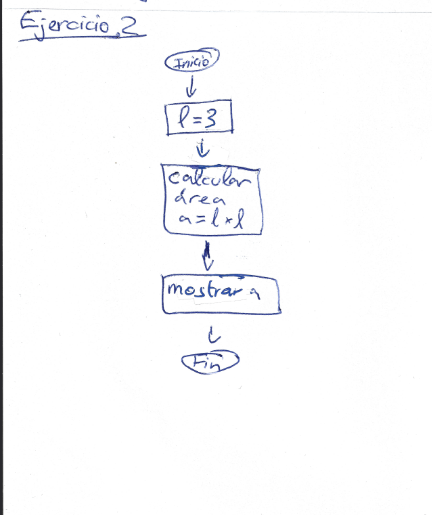 Ejercicio 2
Inicio
l=3
calcular
área
a=l*l
mostrar a
Fin